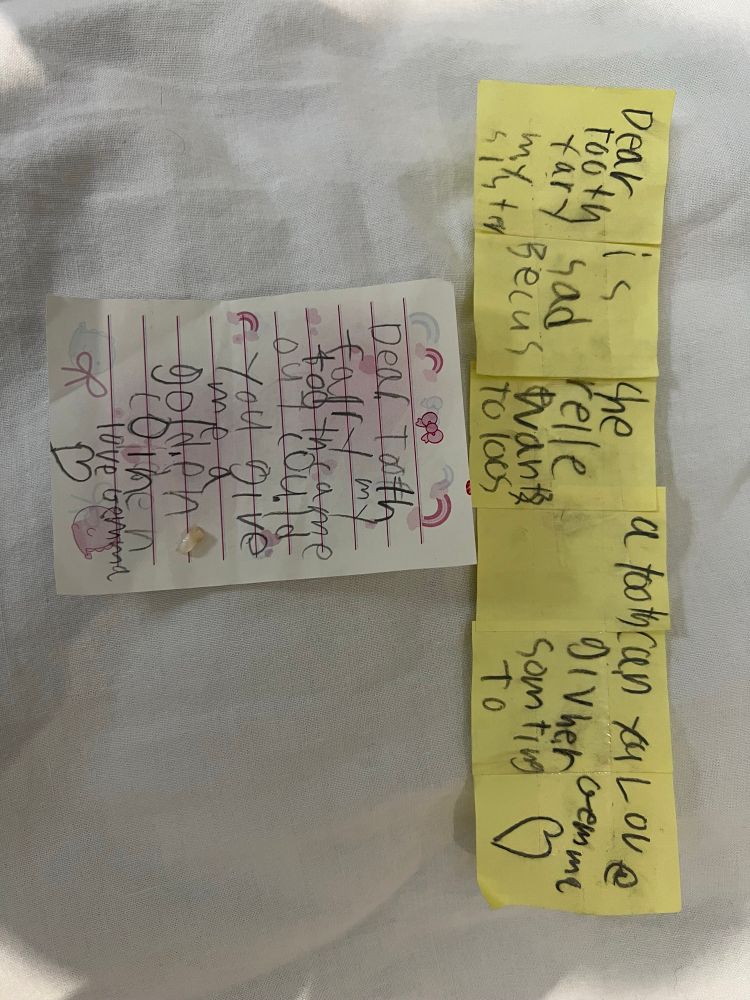 Dear
Tooth
fary
my
sistr
is
sad
Becus
she
relle
wants
To loos
a tooth
can yu
giv her
somting
To
Love
Gemma
Dear Tooth
fairy my
tooth came
out could
you give
me a
love Gemma